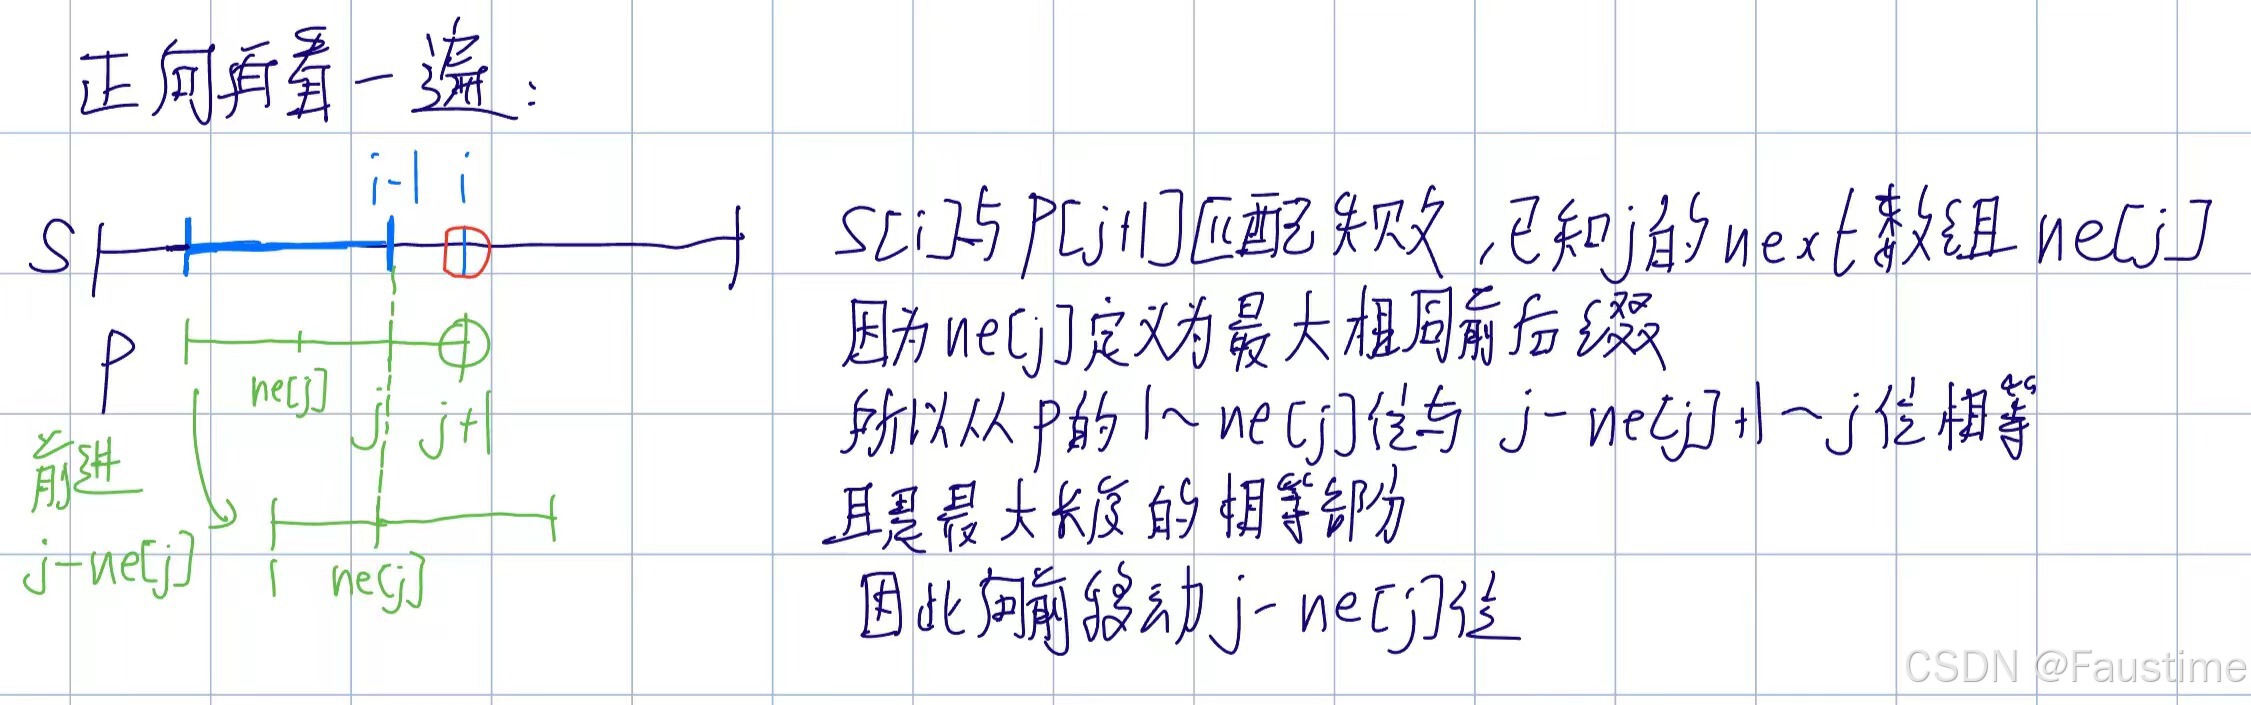 正向再看一遍：
i-1 i
S
S[i]与P[j+1]匹配失败，已知j的next数组且ne[j]
P
因为ne[j]定义为最大相同前后缀
ne[j]
j
j+1
所以从P的1~ne[j]位与 j-ne[j]+1~j位相等
前进
j-ne[j]
且是最大长度的相等部分
1 ne[j]
因此向前移动j-ne[j]位
CSDN @Faustime